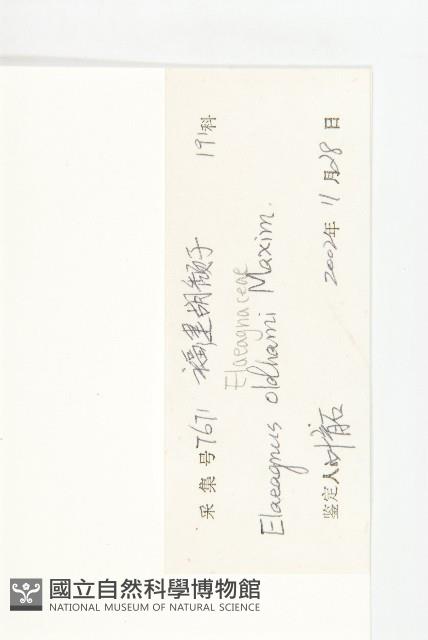 采集号 7671 福建胡颓子 191科
Elaeagnaceae
Elaeagnus oldhami Maxim.
鉴定人 2002年 11月 28日
國立自然科學博物館
NATIONAL MUSEUM OF NATURAL SCIENCE